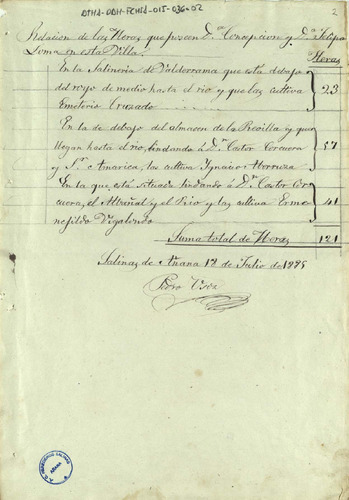 ATHA-DAH-FCHSA-015-036-02
2
Relacion de las Heras que poseen Dª Concepcion y Dª Felipa
Soma en esta Villa.
Heras
En la Salineria de Valderrama que está debajo
del royo de medio hasta el rio y que las cultiva
Emeterio Cruzado
23
En la de debajo del almacen de la Revilla y que
llegan hasta el rio, lindando á Dn Castor Corcuera
y Sr Amarica, las cultiva Ignacio
57
En la que, está situado lindando á Dn Castor Cor
cuera, el Mañal y el Rio y las cultiva Erme
negildo Vigalondo
41
Suma total de Heras
121
Salinas de Añana 18 de Julio de 1885
Pedro
AÑANA